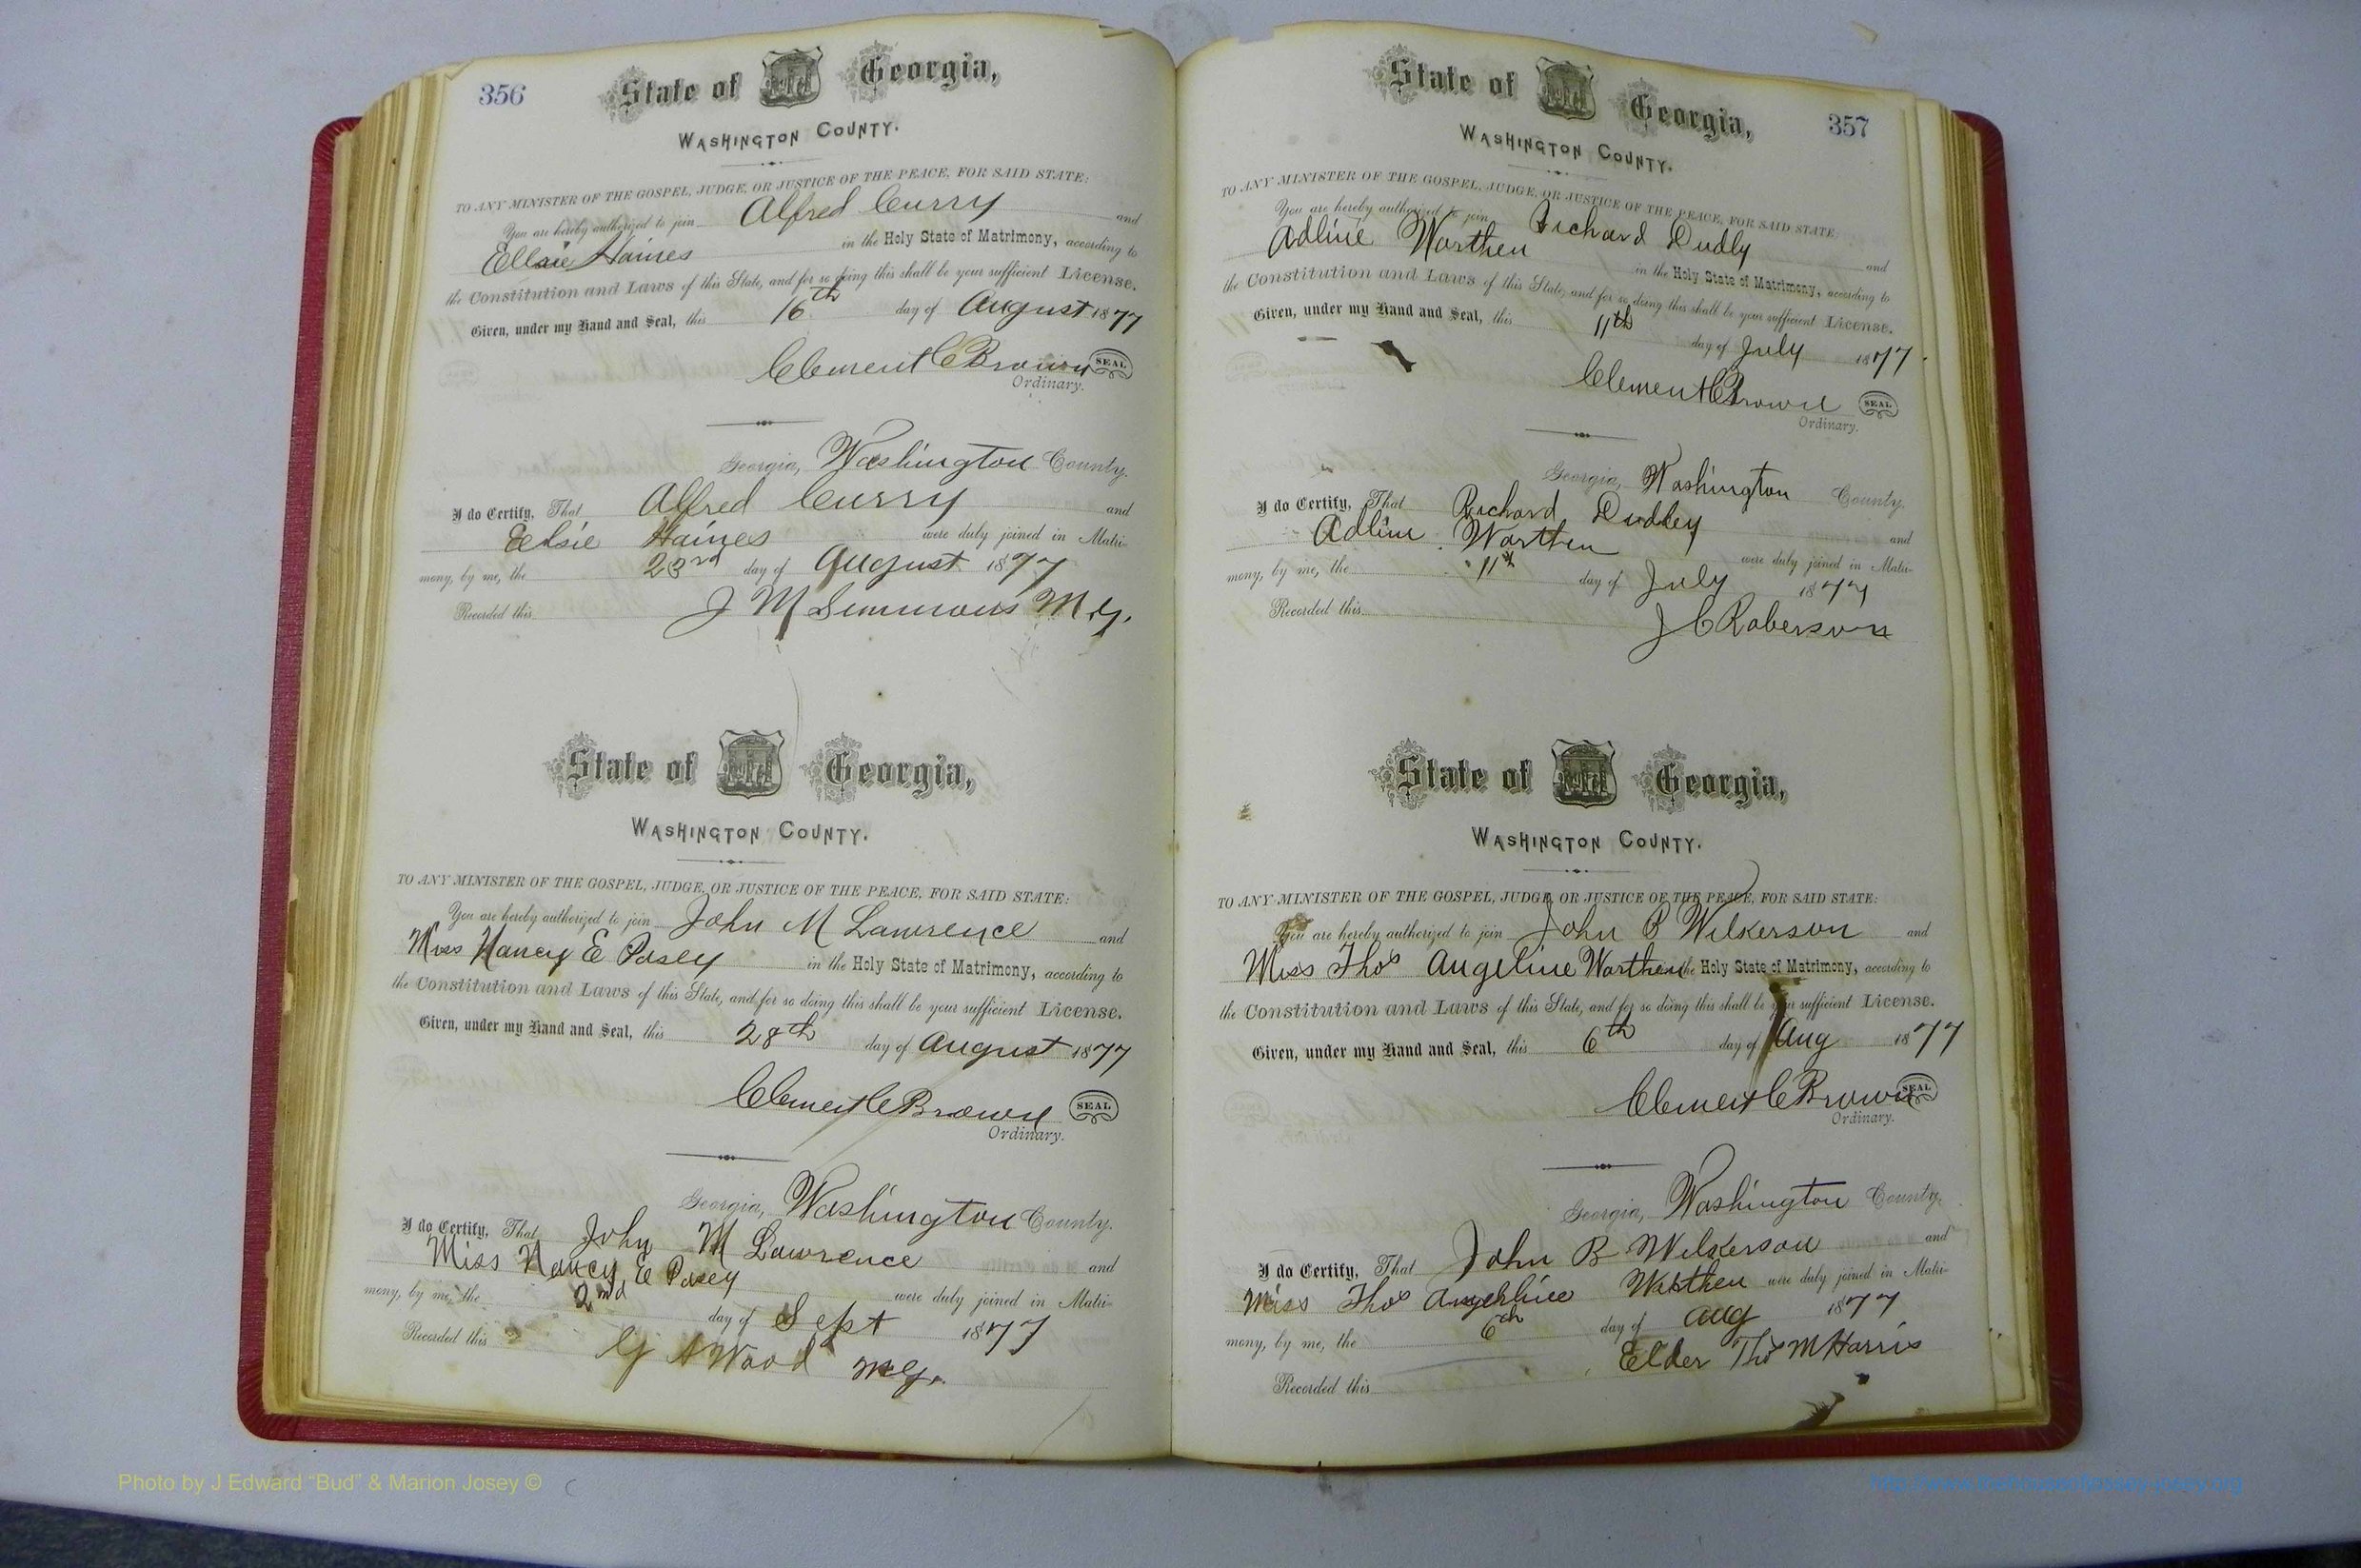 356
State of Georgia,
WASHINGTON COUNTY.
TO ANY MINISTER OF THE GOSPEL, JUDGE, OR JUSTICE OF THE PEACE, FOR SAID STATE:
You are hereby authorized to join Alfred Curry and
Elsie Haines in the Holy State of Matrimony, according to
the Constitution and Laws of this State, and for so doing this shall be your sufficient License.
Given, under my Hand and Seal, this 16th day of August 1877
Clement C Brown SEAL
Ordinary.
Georgia, Washington County.
I do Certify, That Alfred Curry and
Elsie Haines were duly joined in Matri-
mony, by me, the 23rd day of August 1877
Recorded this J M Simmons M.G.
State of Georgia,
WASHINGTON COUNTY.
TO ANY MINISTER OF THE GOSPEL, JUDGE, OR JUSTICE OF THE PEACE, FOR SAID STATE:
You are hereby authorized to join John M Lawrence and
Miss Nancy E Posey in the Holy State of Matrimony, according to
the Constitution and Laws of this State, and for so doing this shall be your sufficient License.
Given, under my Hand and Seal, this 28th day of August 1877
Clement C Brown SEAL
Ordinary.
Georgia, Washington County.
I do Certify, That John M Lawrence and
Miss Nancy E Posey were duly joined in Matri-
mony, by me, the 2nd day of Sept 1877
Recorded this G S Wood M.G.
357
State of Georgia,
WASHINGTON COUNTY.
TO ANY MINISTER OF THE GOSPEL, JUDGE, OR JUSTICE OF THE PEACE, FOR SAID STATE:
You are hereby authorized to join Richard Dudly and
Adline Worthen in the Holy State of Matrimony, according to
the Constitution and Laws of this State, and for so doing this shall be your sufficient License.
Given, under my Hand and Seal, this 11th day of July 1877.
Clement C Brown SEAL
Ordinary.
Georgia, Washington County.
I do Certify, That Richard Dudley and
Adline Worthen were duly joined in Matri-
mony, by me, the 11th day of July 1877
Recorded this J C Roberson
State of Georgia,
WASHINGTON COUNTY.
TO ANY MINISTER OF THE GOSPEL, JUDGE, OR JUSTICE OF THE PEACE, FOR SAID STATE:
You are hereby authorized to join John B Wilkerson and
Miss Thos Angeline Worthen in the Holy State of Matrimony, according to
the Constitution and Laws of this State, and for so doing this shall be your sufficient License.
Given, under my Hand and Seal, this 6th day of Aug 1877
Clement C Brown SEAL
Ordinary.
Georgia, Washington County.
I do Certify, That John B Wilkerson and
Miss Thos Angeline Worthen were duly joined in Matri-
mony, by me, the 6th day of Aug 1877
Elder Thos M Harris
Recorded this
Photo by J Edward “Bud” & Marion Josey ©